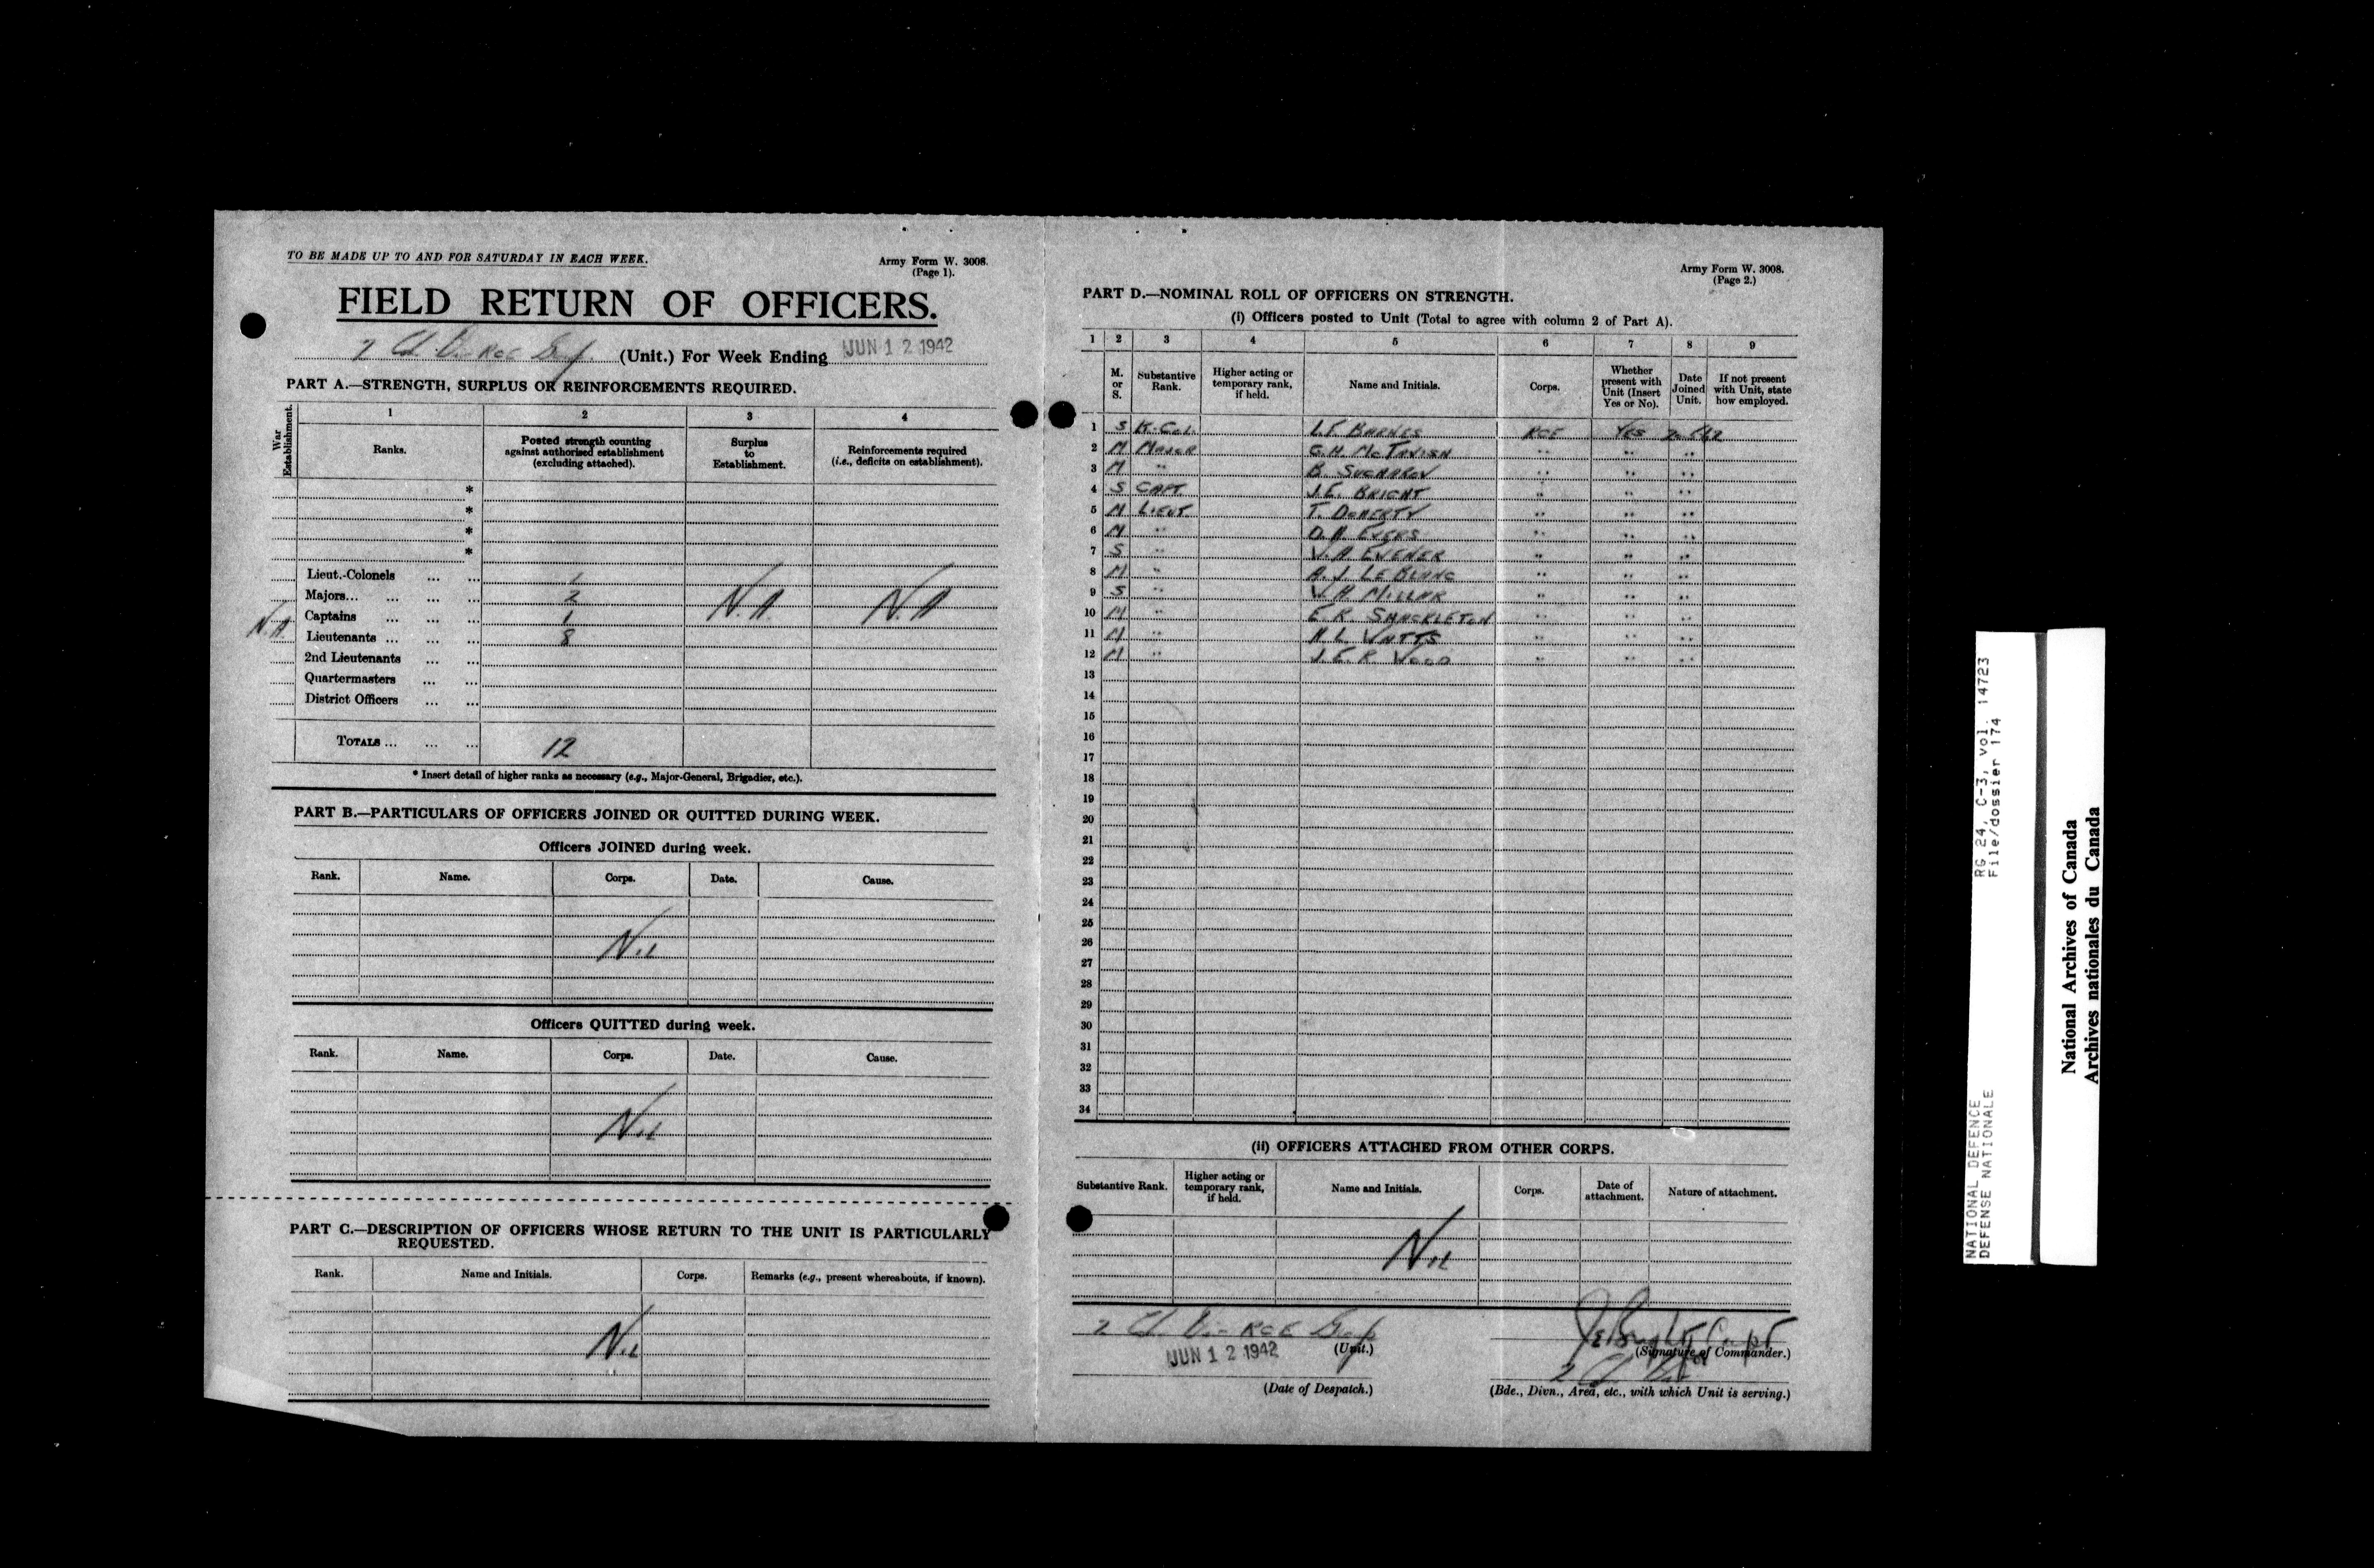 TO BE MADE UP TO AND FOR SATURDAY IN EACH WEEK.
Army Form W. 3008.
(Page 1).
FIELD RETURN OF OFFICERS.
2 RCE (Unit.) For Week Ending JUN 12 1942
PART A.—STRENGTH, SURPLUS OR REINFORCEMENTS REQUIRED.
War Establishment.
1 2 3 4
Ranks.
Posted strength counting against authorised establishment (excluding attached).
Surplus to Establishment.
Reinforcements required (i.e., deficits on establishment).
*
*
*
*
Lieut.-Colonels ... ... 1
Majors... ... ... ... 2 N.A. N.A
Captains ... ... ... 1
N.A. Lieutenants ... ... ... 8
2nd Lieutenants ... ...
Quartermasters ... ...
District Officers ... ...
TOTALS ... ... ... 12
* Insert detail of higher ranks as necessary (e.g., Major-General, Brigadier, etc.).
PART B.—PARTICULARS OF OFFICERS JOINED OR QUITTED DURING WEEK.
Officers JOINED during week.
Rank. Name. Corps. Date. Cause.
Nil
Officers QUITTED during week.
Rank. Name. Corps. Date. Cause.
Nil
PART C.—DESCRIPTION OF OFFICERS WHOSE RETURN TO THE UNIT IS PARTICULARLY
REQUESTED.
Rank. Name and Initials. Corps. Remarks (e.g., present whereabouts, if known).
Nil
Army Form W. 3008.
(Page 2.)
PART D.—NOMINAL ROLL OF OFFICERS ON STRENGTH.
(i) Officers posted to Unit (Total to agree with column 2 of Part A).
1 2 3 4 5 6 7 8 9
M. or S.
Substantive Rank.
Higher acting or temporary rank, if held.
Name and Initials.
Corps.
Whether present with Unit (Insert Yes or No).
Date Joined Unit.
If not present with Unit, state how employed.
1 S Lt. Col. L.F. BARNES RCE YES
2 M MAJOR G.H. McTAVISH " " "
3 M " B. SUCHAROV " " "
4 S CAPT J.E. BRIGHT " " "
5 M LIEUT T. DOHERTY " " "
6 M " D.A. EVERS " " "
7 S " V.A. " " "
8 M " A.J. LEBLANC " " "
9 S " V.A. MILLAR " " "
10 M " E.R. SHACKLETON " " "
11 M " A.L. WATTS " " "
12 M " J.E.R. WOOD " " "
13
14
15
16
17
18
19
20
21
22
23
24
25
26
27
28
29
30
31
32
33
34
(ii) OFFICERS ATTACHED FROM OTHER CORPS.
Substantive Rank.
Higher acting or temporary rank, if held.
Name and Initials.
Corps.
Date of attachment.
Nature of attachment.
Nil
2 RCE
(Unit.)
JUN 12 1942
(Date of Despatch.)
J E Bright Capt
(Signature of Commander.)
(Bde., Divn., Area, etc., with which Unit is serving.)
NATIONAL DEFENCE RG 24, C-3, vol. 14723
DEFENSE NATIONALE File/dossier 174
National Archives of Canada
Archives nationales du Canada